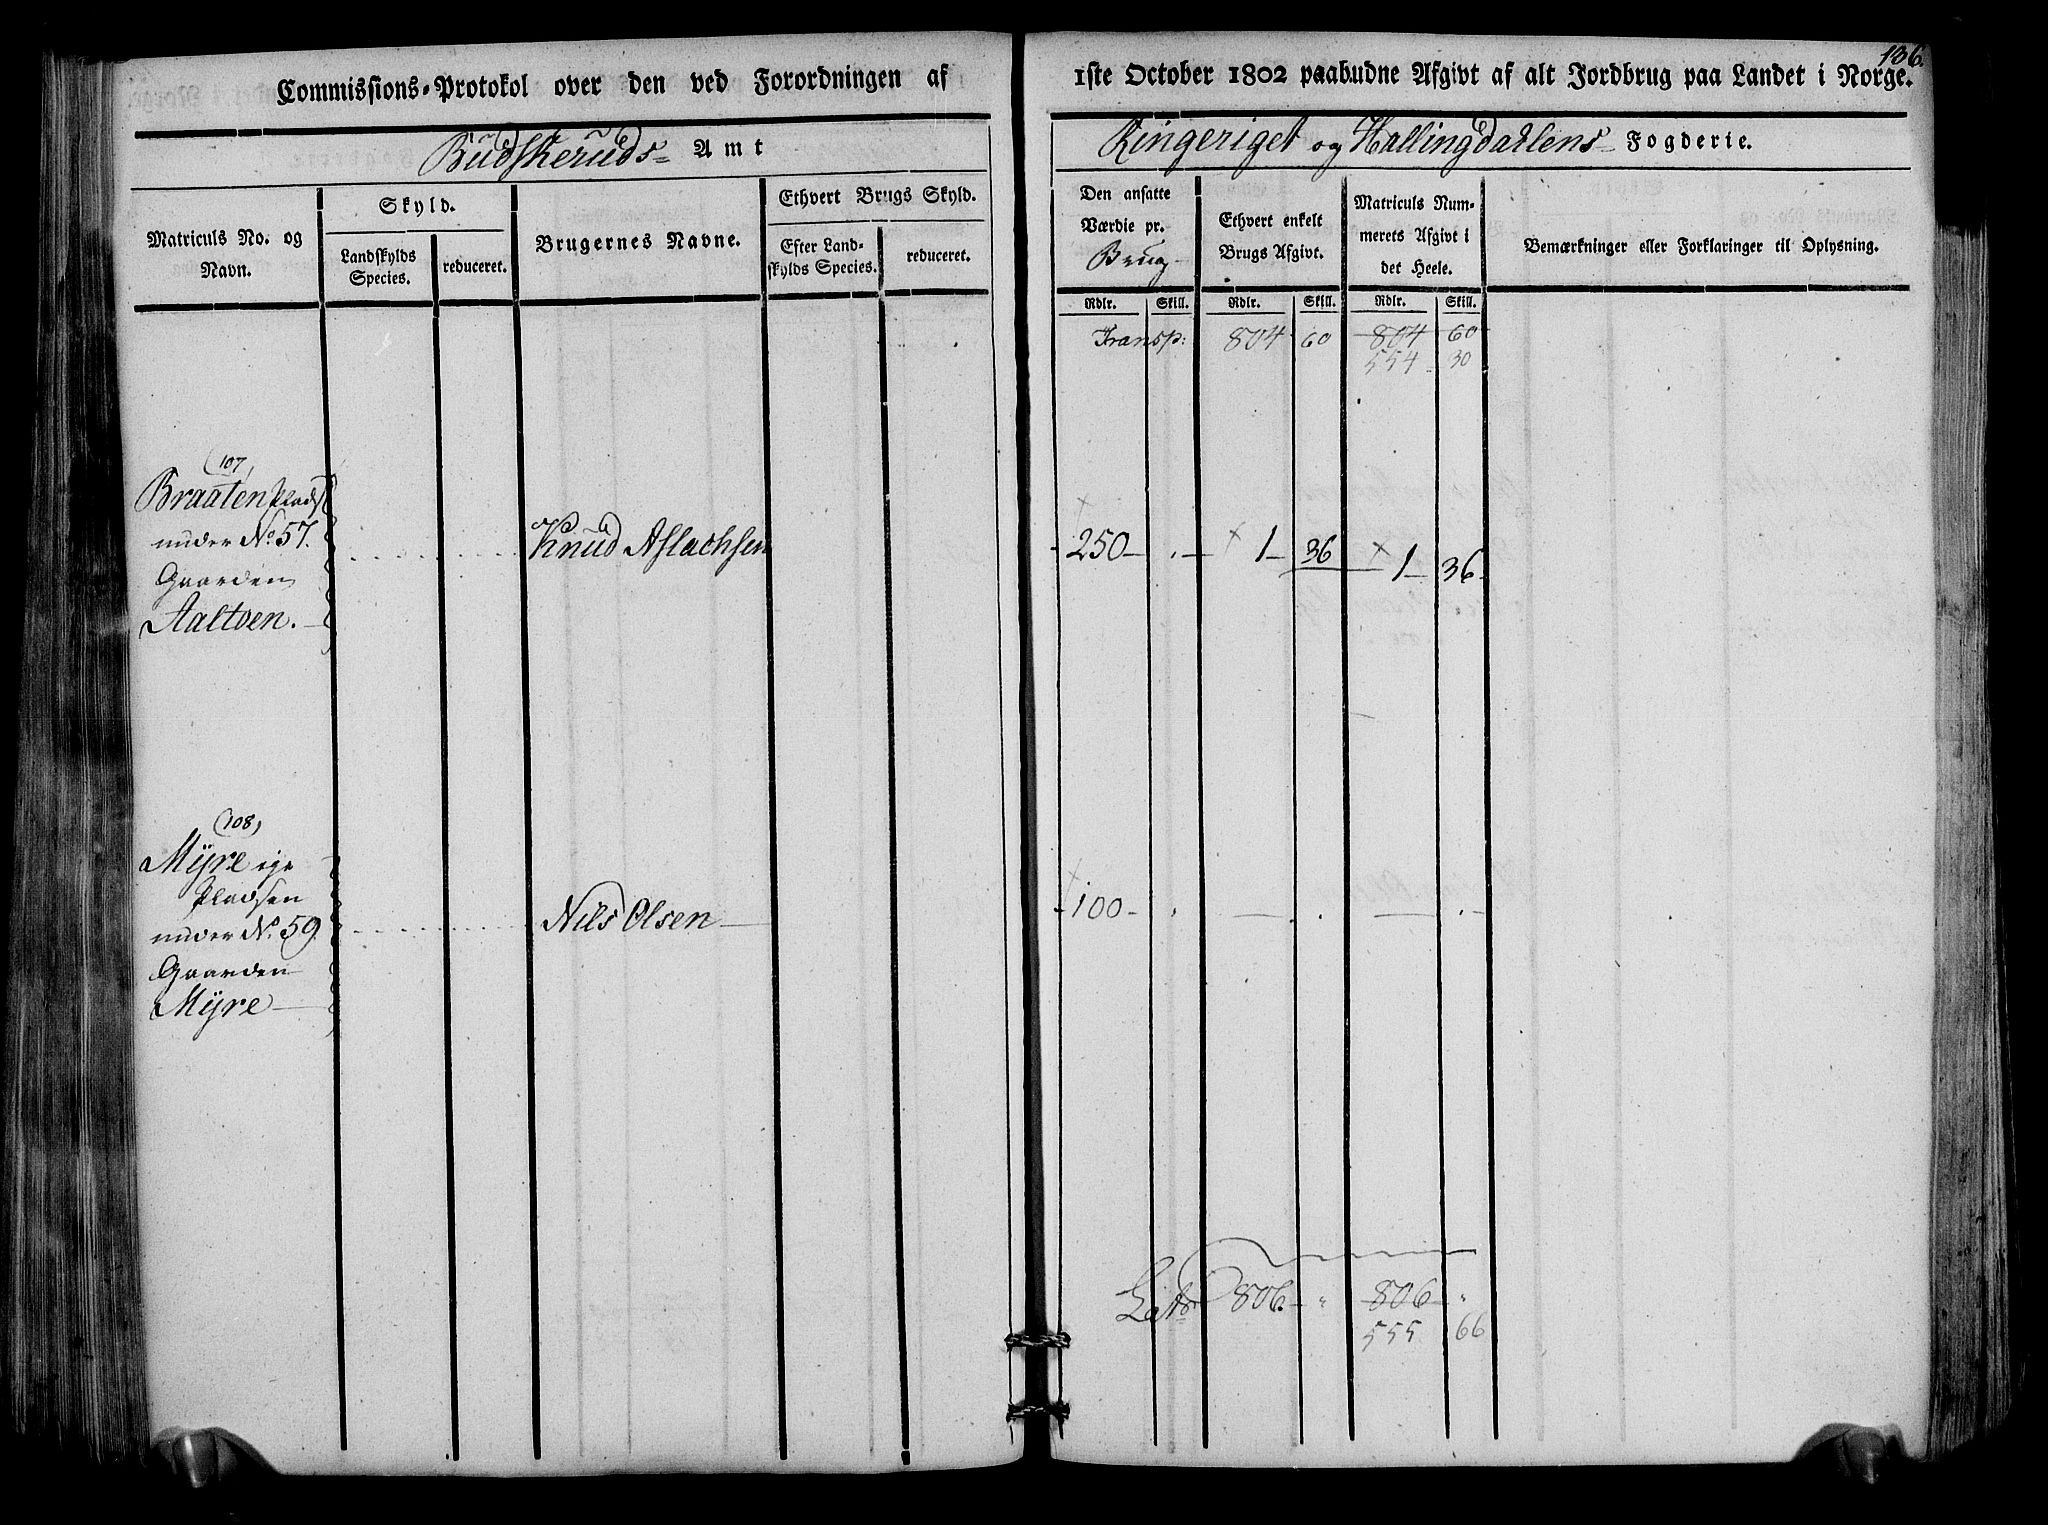 136.
Commissions-Protokol over den ved Forordningen af 1ste October 1802 paabudne Afgivt af alt Jordbrug paa Landet i Norge.
Budskeruds Amt
Ringeriget og Hallingdahlens Fogderie.
Matriculs No. og Navn.
Skyld.
Landskylds Species.
reduceret.
Brugernes Navne.
Ethvert Brugs Skyld.
Efter Landskylds Species.
reduceret.
Den ansatte Værdie pr. Brug
Ethvert enkelt Brugs Afgivt.
Matriculs Nummerets Afgivt i det Heele.
Bemærkninger eller Forklaringer til Oplysning.
Rdlr. Skill. Rdlr. Skill. Rdlr. Skill.
Transp: 804 60 804 60
554 30
(107)
Braaten Plads
under No 57.
Gaarden
Aaltoen.
Knud Aslachsen
250 1 36 1 36
(108)
Myre eje
Pladsen
under No. 59
Gaarden
Myre
Nils Olsen
100
Lats 806. " 806 "
555 66